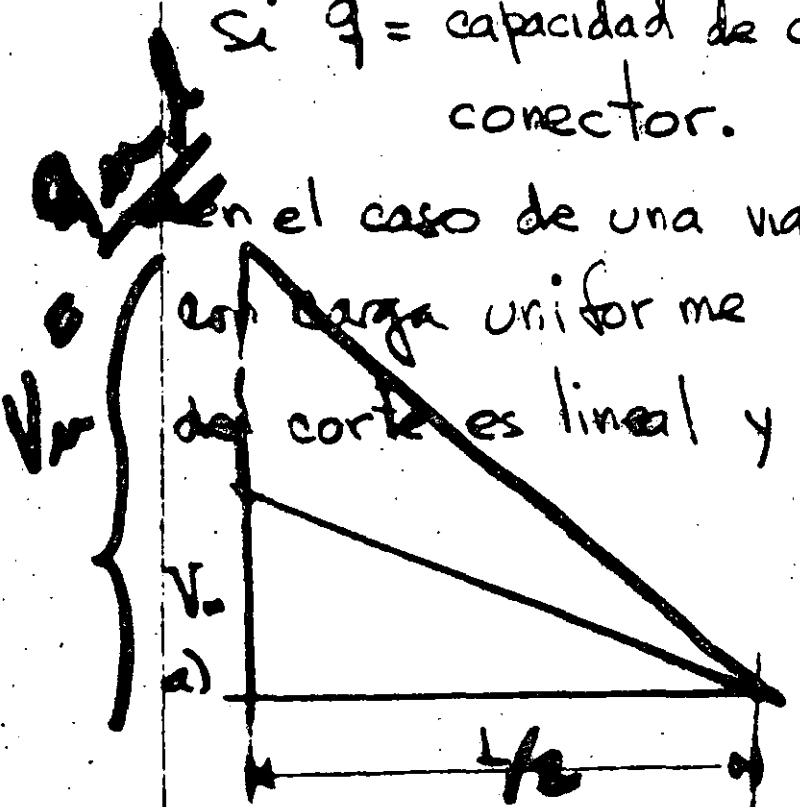 Si q = capacidad de
conector.
en el caso de una
con carga uniforme
del corte es lineal y
a)
L/2